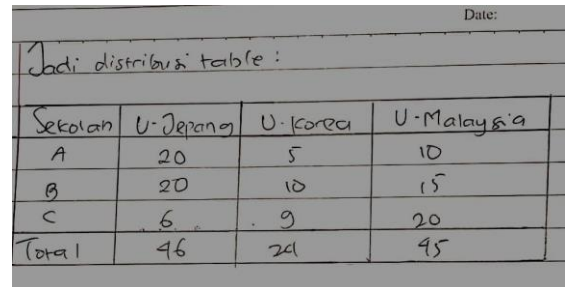 Date:
Jadi distribusi table :
Sekolah U-Jepang U-Korea U-Malaysia
A 20 5 10
B 20 10 15
C 6 9 20
Total 46 24 45